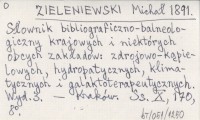 O
ZIELENIEWSKI Michał 1891.
Słownik bibliograficzno-balneolo-
giczny krajowych i niektórych
obcych zakładów: zdrojowo-kąpie-
lowych, hydropatycznych, klima-
tycznych i galaktoterapeutycznych.
Wyd. 3. - Kraków. Ss. X, 170,
8°.